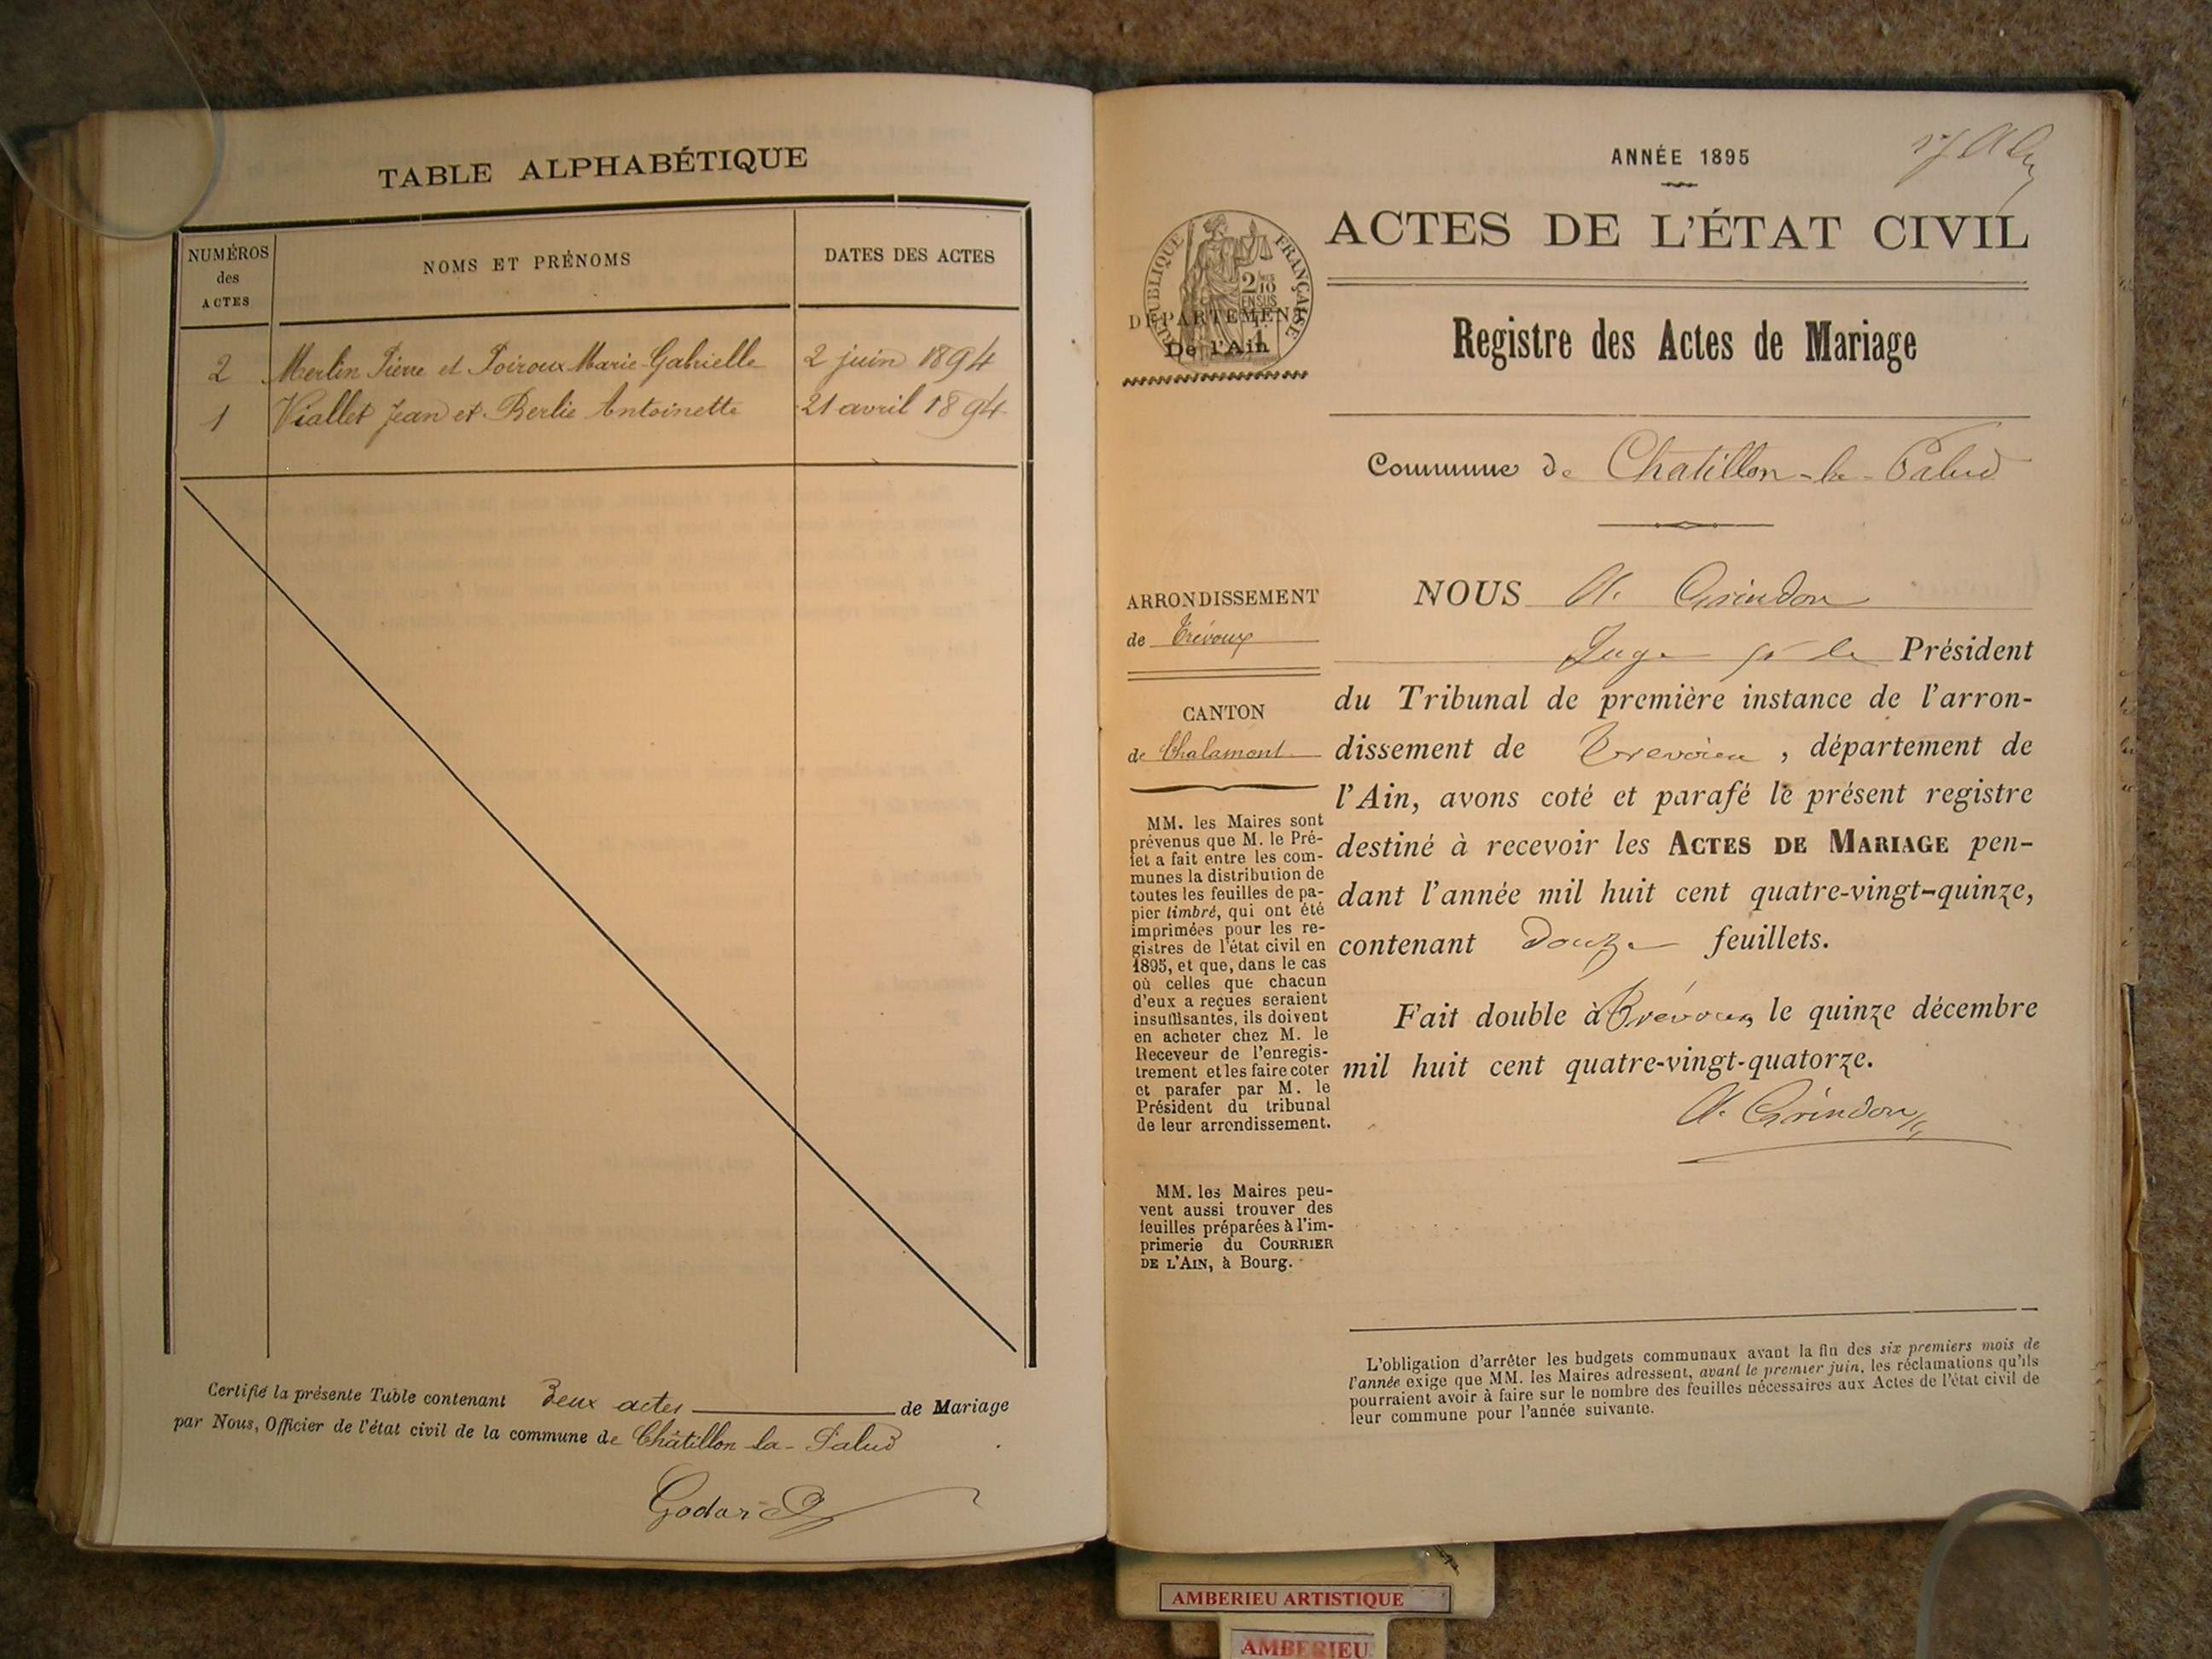 TABLE ALPHABÉTIQUE
NUMÉROS des ACTES
NOMS ET PRÉNOMS
DATES DES ACTES
2 Merlin Pierre et Poiroux Marie-Gabrielle 2 juin 1894
1 Viallet Jean et Berlie Antoinette 21 avril 1894
Certifié la présente Table contenant deux actes de Mariage
par Nous, Officier de l'état civil de la commune de Châtillon-la-Palud
Godard
ANNÉE 1895
ACTES DE L'ÉTAT CIVIL
RÉPUBLIQUE FRANÇAISE
DÉPARTEMENT
De l'Ain
Registre des Actes de Mariage
Commune de Chatillon-la-Palud
ARRONDISSEMENT
de Trévoux
CANTON
de Chalamont
MM. les Maires sont
prévenus que M. le Pré-
fet a fait entre les com-
munes la distribution de
toutes les feuilles de pa-
pier timbré, qui ont été
imprimées pour les re-
gistres de l'état civil en
1895, et que, dans le cas
où celles que chacun
d'eux a reçues seraient
insuffisantes, ils doivent
en acheter chez M. le
Receveur de l'enregis-
trement et les faire coter
et parafer par M. le
Président du tribunal
de leur arrondissement.
MM. les Maires peu-
vent aussi trouver des
feuilles préparées à l'im-
primerie du COURRIER
DE L'AIN, à Bourg.
NOUS A. Grindon
Juge Président
du Tribunal de première instance de l'arron-
dissement de Trévoux, département de
l'Ain, avons coté et parafé le présent registre
destiné à recevoir les ACTES DE MARIAGE pen-
dant l'année mil huit cent quatre-vingt-quinze,
contenant douze feuillets.
Fait double à Trévoux, le quinze décembre
mil huit cent quatre-vingt-quatorze.
A. Grindon
L'obligation d'arrêter les budgets communaux avant la fin des six premiers mois de
l'année exige que MM. les Maires adressent, avant le premier juin, les réclamations qu'ils
pourraient avoir à faire sur le nombre des feuilles nécessaires aux Actes de l'état civil de
leur commune pour l'année suivante.
AMBERIEU ARTISTIQUE
AMBERIEU